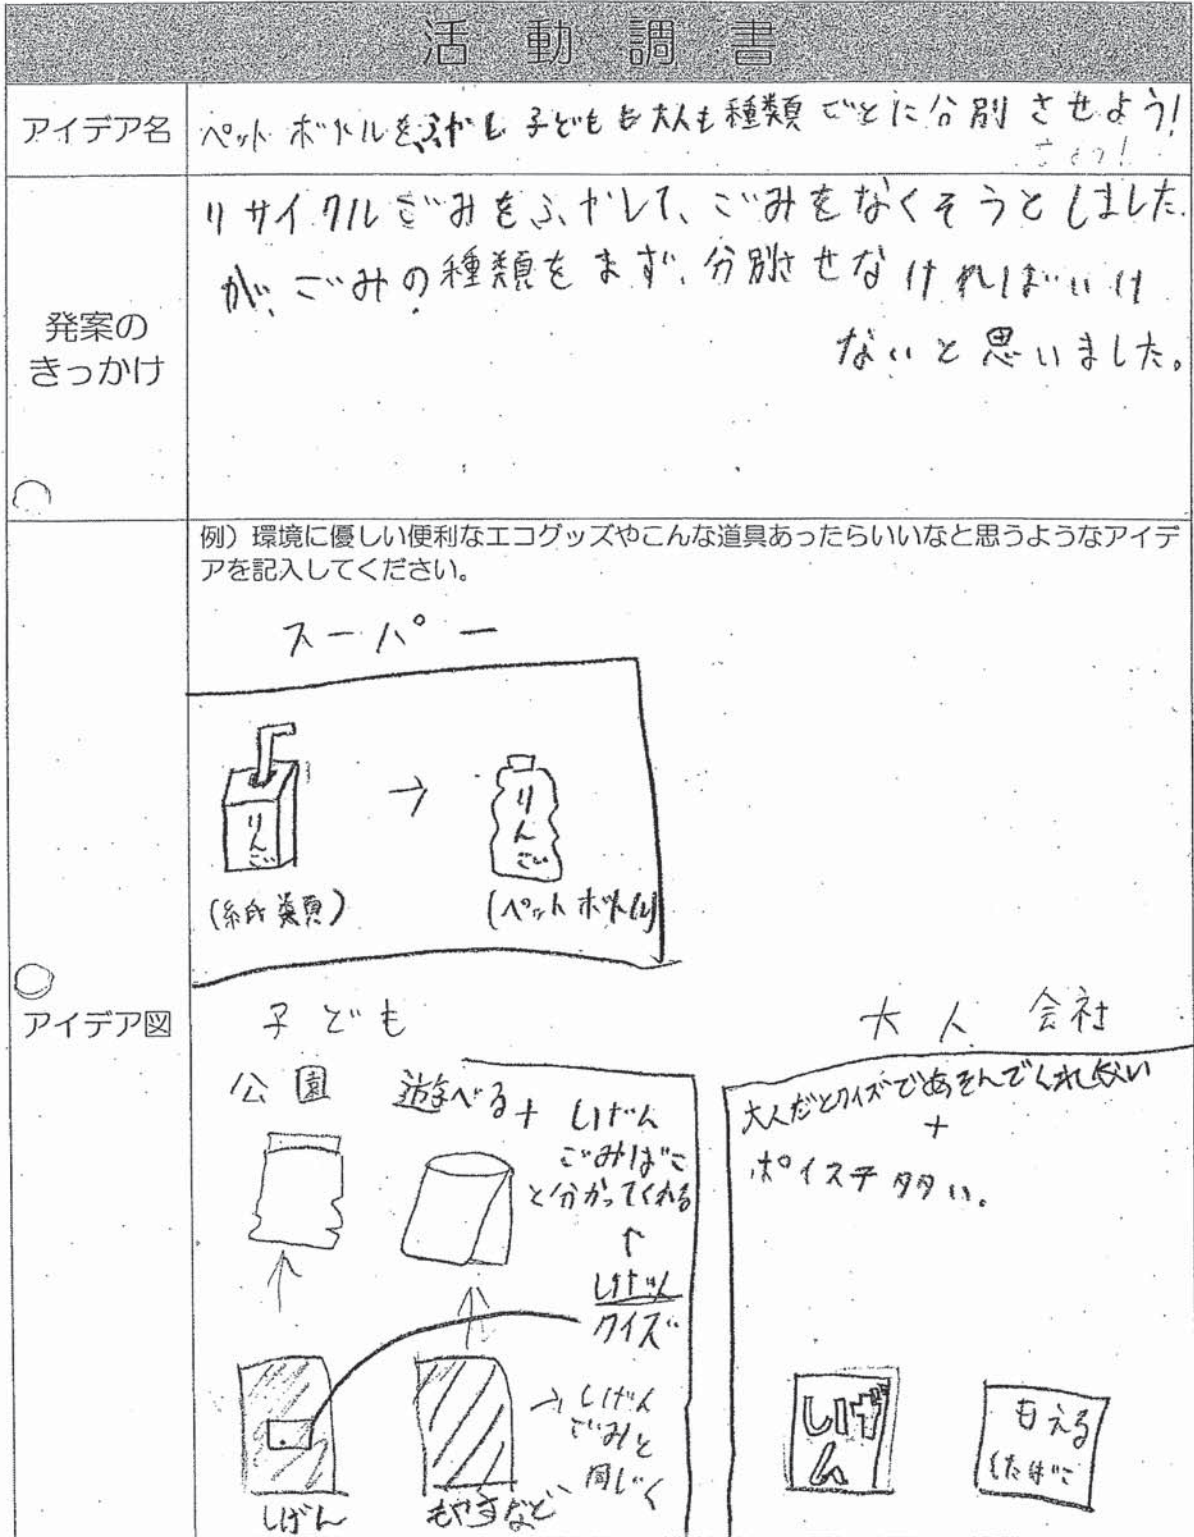 活動調書
アイデア名
ペットボトルをふやし子どもも大人も種類ごとに分別させよう!
発案の
きっかけ
リサイクルごみをふやして、ごみをなくそうとしました
が、ごみの種類をまず、分別させなければいけ
ないと思いました。
アイデア図
例）環境に優しい便利なエコグッズやこんな道具あったらいいなと思うようなアイデ
アを記入してください。
スーパー
りんご
→
りんご
(紙類)
(ペットボトル)
子ども
公園
遊べる+
しげん
ごみばこ
と分かってくれる
↑
しげん
クイズ
→しげん
ごみと
同じく
しげん
もやすなど
大人 会社
大人だとクイズであそんでくれない
+
ポイステ多い。
しげん
もえる